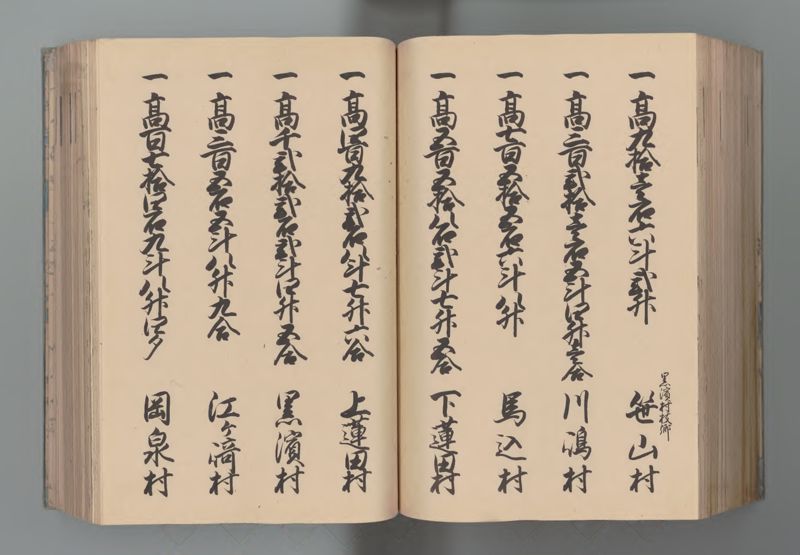 一高九拾壱石六斗弐升 黒濱村枝郷 笹山村
一高三百弐拾壱石五斗四升壱合 川嶋村
一高七百五拾五石六斗八升 馬込村
一高五百五拾八石弐斗七升五合 下蓮田村
一高四百九拾弐石八斗七升六合 上蓮田村
一高千弐拾弐石弐斗四升五合 黒濱村
一高三百五石五斗八升九合 江ヶ﨑村
一高百七拾四石九斗八升四夕 岡泉村